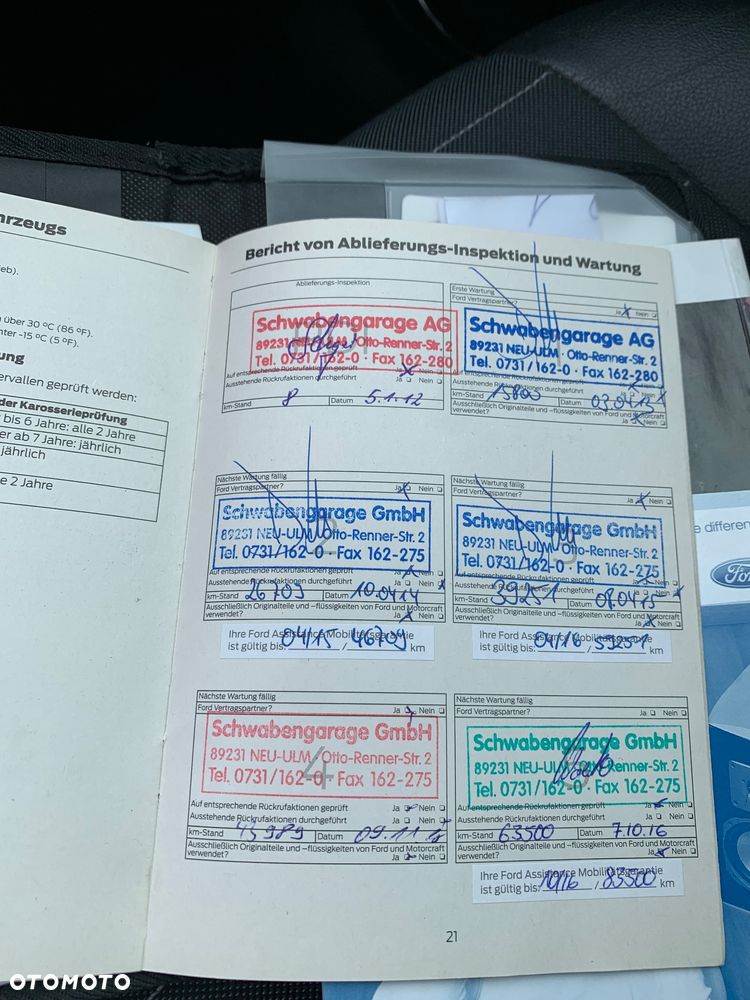 hrzeugs
eb).
über 30 °C (86 °F).
nter -15 °C (5 °F).
ung
ervallen geprüft werden:
der Karosserieprüfung
bis 6 Jahre: alle 2 Jahre
er ab 7 Jahre: jährlich
jährlich
e 2 Jahre
Bericht von Ablieferungs-Inspektion und Wartung
Ablieferungs-Inspektion
Schwabengarage AG
89231 NEU-ULM · Otto-Renner-Str. 2
Tel. 0731/162-0 · Fax 162-280
Auf entsprechende Rückrufaktionen geprüft
Ausstehende Rückrufaktionen durchgeführt Ja Nein
km-Stand 8 Datum 5.1.12
Erste Wartung
Ford Vertragspartner? Ja Nein
Schwabengarage AG
89231 NEU-ULM · Otto-Renner-Str. 2
Tel. 0731/162-0 · Fax 162-280
Auf entsprechende Rückrufaktionen geprüft
Ausstehende Rückrufaktionen durchgeführt Ja Nein
km-Stand 15800 Datum 03.04.13
Ausschließlich Originalteile und –flüssigkeiten von Ford und Motorcraft
verwendet? Ja Nein
Nächste Wartung fällig
Ford Vertragspartner? Ja Nein
Schwabengarage GmbH
89231 NEU-ULM · Otto-Renner-Str. 2
Tel. 0731/162-0 · Fax 162-275
Auf entsprechende Rückrufaktionen geprüft
Ausstehende Rückrufaktionen durchgeführt Ja Nein
km-Stand 26709 Datum 10.04.14
Ausschließlich Originalteile und –flüssigkeiten von Ford und Motorcraft
verwendet? Ja Nein
Ihre Ford Assistance Mobilitätsgarantie
ist gültig bis: 04/15 / 46709 km
Nächste Wartung fällig
Ford Vertragspartner? Ja Nein
Schwabengarage GmbH
89231 NEU-ULM · Otto-Renner-Str. 2
Tel. 0731/162-0 · Fax 162-275
Auf entsprechende Rückrufaktionen geprüft
Ausstehende Rückrufaktionen durchgeführt Ja Nein
km-Stand 39251 Datum 08.04.15
Ausschließlich Originalteile und –flüssigkeiten von Ford und Motorcraft
verwendet? Ja Nein
Ihre Ford Assistance Mobilitätsgarantie
ist gültig bis: 04/16 / 59251 km
Nächste Wartung fällig
Ford Vertragspartner? Ja Nein
4
Schwabengarage GmbH
89231 NEU-ULM · Otto-Renner-Str. 2
Tel. 0731/162-0 · Fax 162-275
Auf entsprechende Rückrufaktionen geprüft Ja Nein
Ausstehende Rückrufaktionen durchgeführt Ja Nein
km-Stand 45989 Datum 09.11.15
Ausschließlich Originalteile und –flüssigkeiten von Ford und Motorcraft
verwendet? Ja Nein
Nächste Wartung fällig
Ford Vertragspartner? Ja Nein
Schwabengarage GmbH
89231 NEU-ULM · Otto-Renner-Str. 2
Tel. 0731/162-0 · Fax 162-275
Auf entsprechende Rückrufaktionen geprüft Ja Nein
Ausstehende Rückrufaktionen durchgeführt Ja Nein
km-Stand 63500 Datum 7.10.16
Ausschließlich Originalteile und –flüssigkeiten von Ford und Motorcraft
verwendet? Ja Nein
Ihre Ford Assistance Mobilitätsgarantie
ist gültig bis: 10/16 / 83500 km
21
e differen
Ford
OTOMOTO